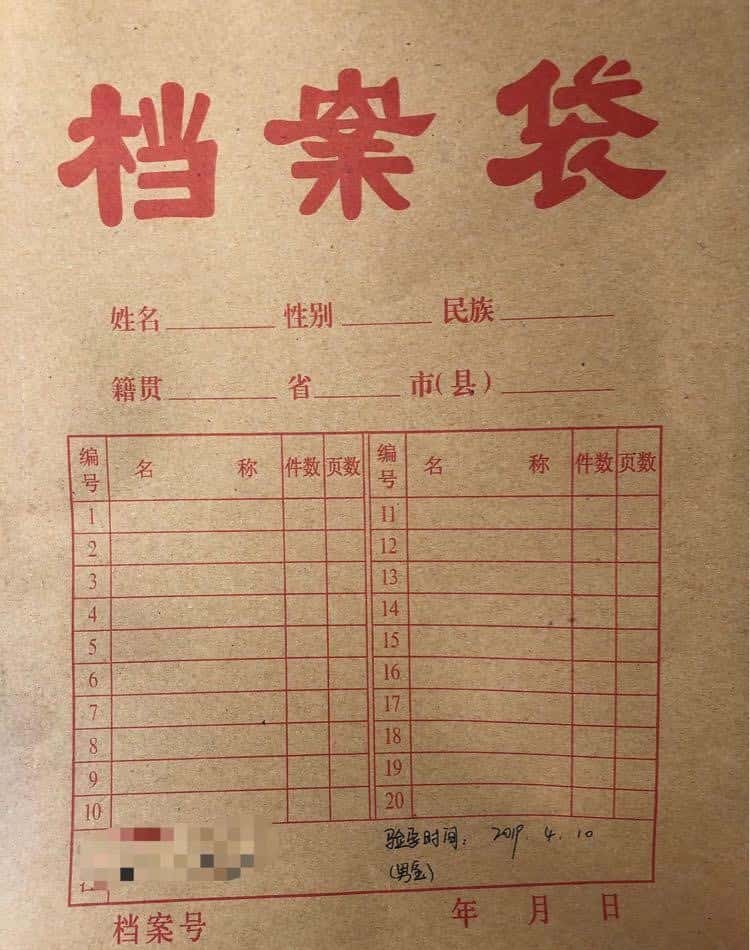 档案袋
姓名 性别 民族
籍贯 省 市(县)
编号 名称 件数 页数 编号 名称 件数 页数
1 11
2 12
3 13
4 14
5 15
6 16
7 17
8 18
9 19
10 20
验孕时间: 2019. 4. 10
(男宝)
档案号 年 月 日